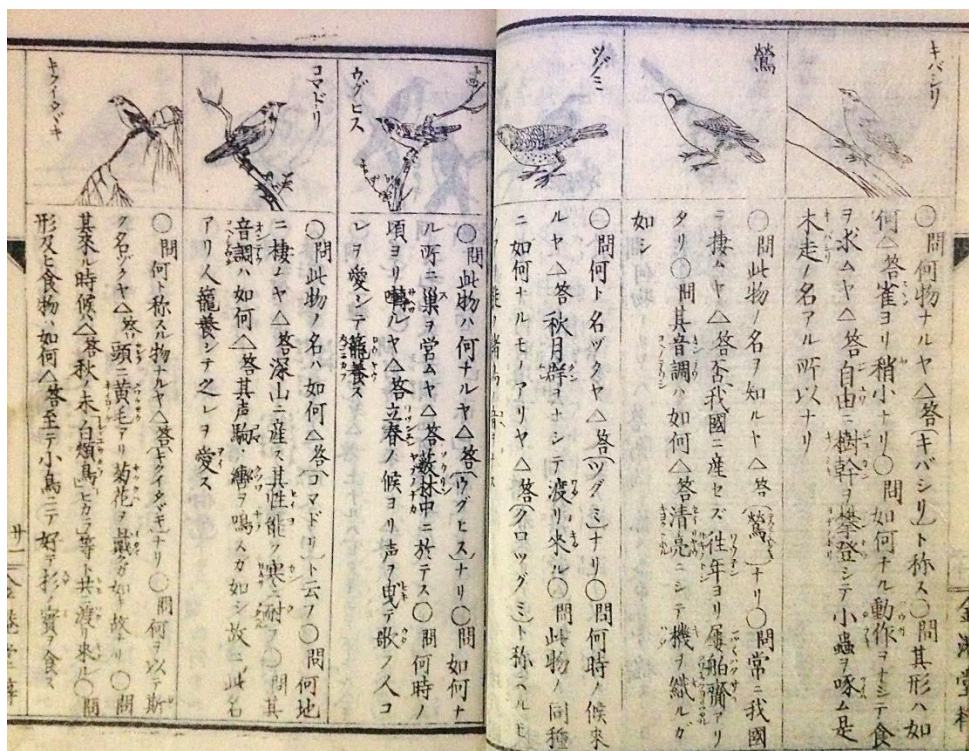 キバシリ
○問何物ナルヤ△答(キバシリ)ト称ス○問其形ハ如
何△答雀ヨリ稍小ナリ○問如何ナル動作ヲナシテ食
ヲ求ムヤ△答自由ニ樹幹ヲ攀登シテ小蟲ヲ啄ム是
木走ノ名アル所以ナリ
鶯
○問此物ノ名ヲ知ルヤ△答(鶯)ナリ○問常ニ我國
ニ棲ムヤ△答否我國ニ産セズ往年ヨリ屢舶齎アリ
タリ○問其音調ハ如何△答清亮ニシテ機ヲ織ルガ
如シ
ツグミ
○問何ト名ヅクヤ△答(ツグミ)ナリ○問何時ノ候来
ルヤ△答秋月群ヲナシテ渡リ来ル○問此物ノ同種
ニ如何ナルモノアリヤ△答(クロツグミ)ト称ヘルモ
ウグヒス
○問此物ハ何ナルヤ△答(ウグヒス)ナリ○問如何ナ
ル所ニ巣ヲ営ムヤ△答薮林中ニ於テス○問何時ノ
頃ヨリ囀ルヤ△答立春ノ候ヨリ声ヲ曳テ歌フ人コ
レヲ愛シテ籠養ス
コマドリ
○問此物ノ名ハ如何△答(コマドリ)ト云フ○問何地
ニ棲ムヤ△答深山ニ産ス其性能ク寒ニ耐フ○問其
音調ハ如何△答其声駒ノ轡ヲ鳴スガ如シ故ニ此名
アリ人籠養シテ之レヲ愛ス
キクイタダキ
○問何ト称スル物ナルヤ△答(キクイタダキ)ナリ○問何ヲ以テ斯
ク名ヅクヤ△答頭ニ黄毛アリ菊花ヲ戴クガ如キ故ナリ○問
其來ル時候ハ△答秋ノ末「白頬鳥」ヒカラ等ト共ニ渡リ來ル○問
形及ヒ食物ハ如何△答至テ小鳥ニテ好テ杉ノ實ヲ食ス